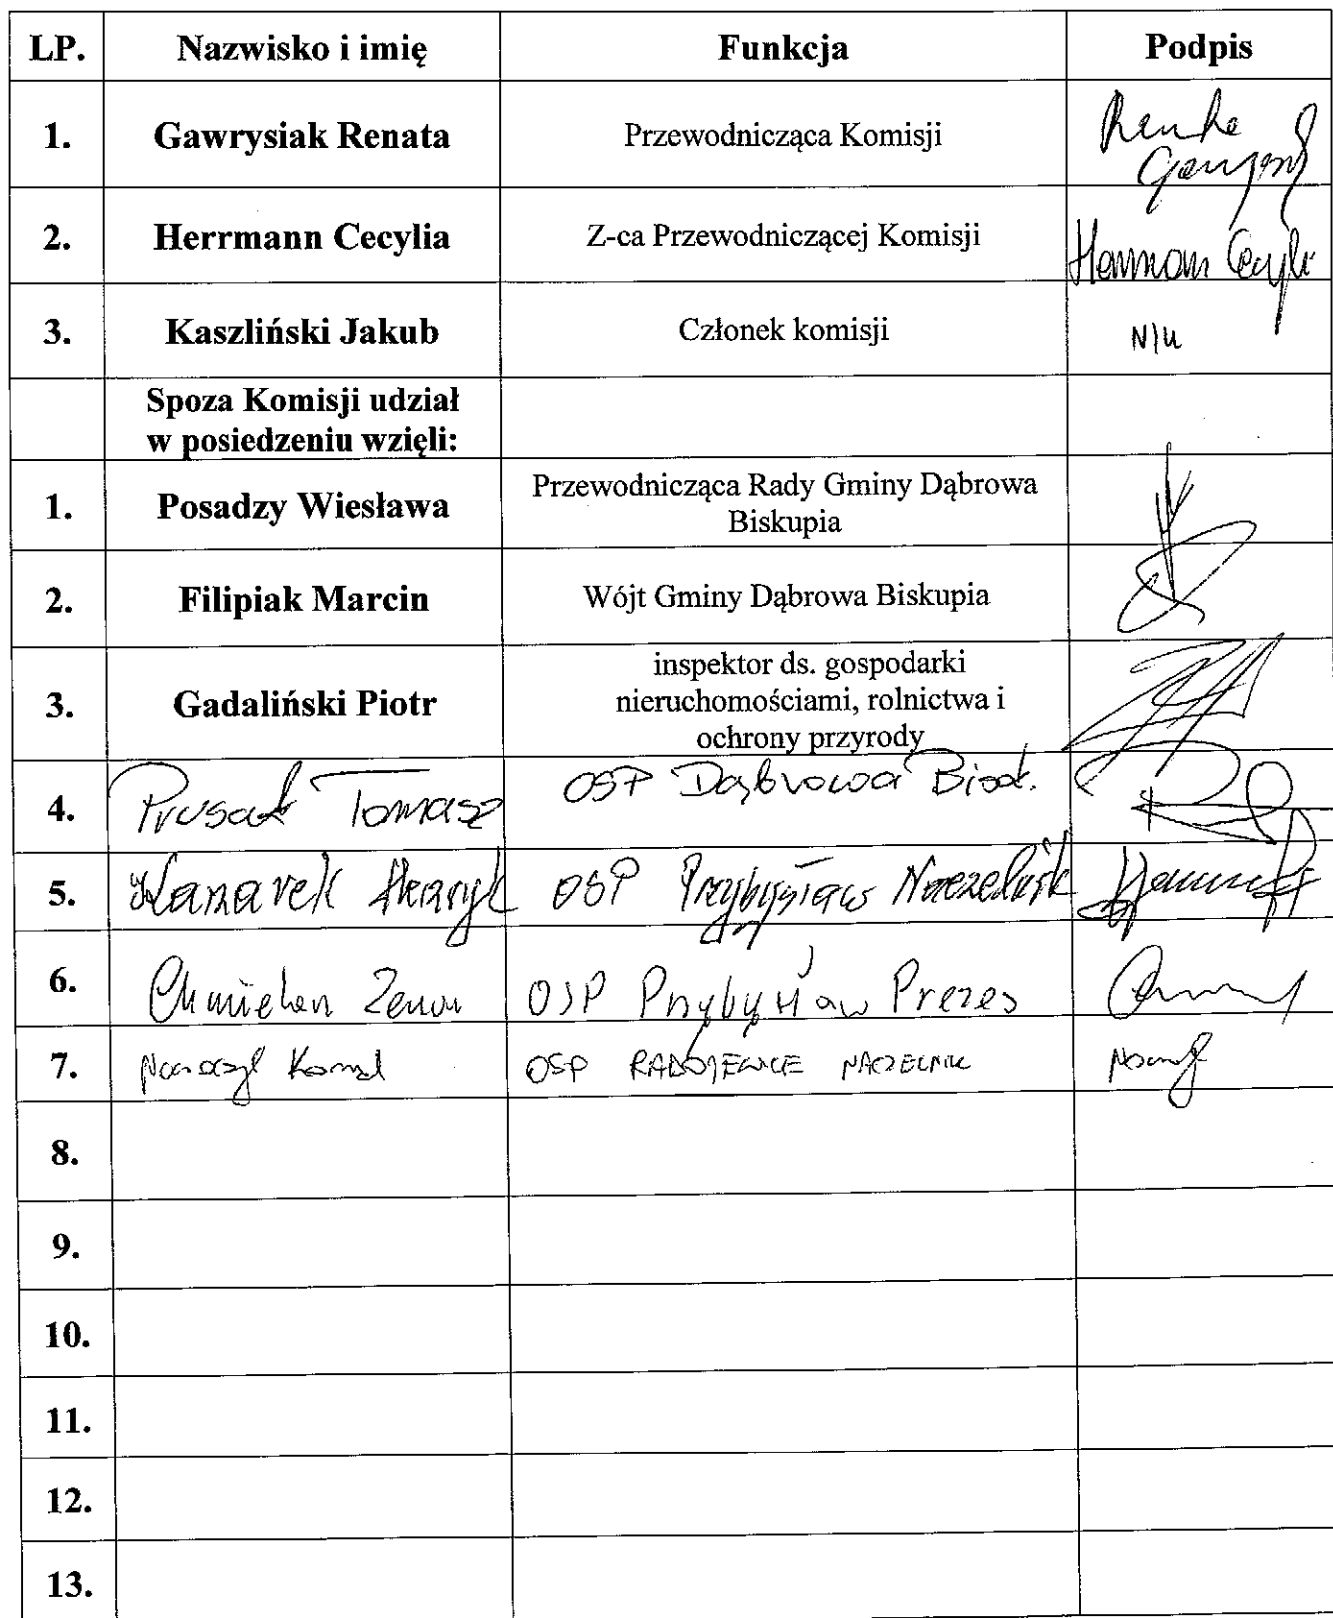 LP. Nazwisko i imię Funkcja Podpis
1. Gawrysiak Renata Przewodnicząca Komisji
2. Herrmann Cecylia Z-ca Przewodniczącej Komisji
3. Kaszliński Jakub Członek komisji N/u
Spoza Komisji udział
w posiedzeniu wzięli:
1. Posadzy Wiesława Przewodnicząca Rady Gminy Dąbrowa
Biskupia
2. Filipiak Marcin Wójt Gminy Dąbrowa Biskupia
inspektor ds. gospodarki
3. Gadaliński Piotr nieruchomościami, rolnictwa i
ochrony przyrody
4. Prusak Tomasz OSP Dąbrowa Bisk.
5. Kanarek Henryk OSP Przybysław Naczelnik
6. Zenon OSP Przybysław Prezes
7. OSP RADOJEWICE NACZELNIK
8.
9.
10.
11.
12.
13.